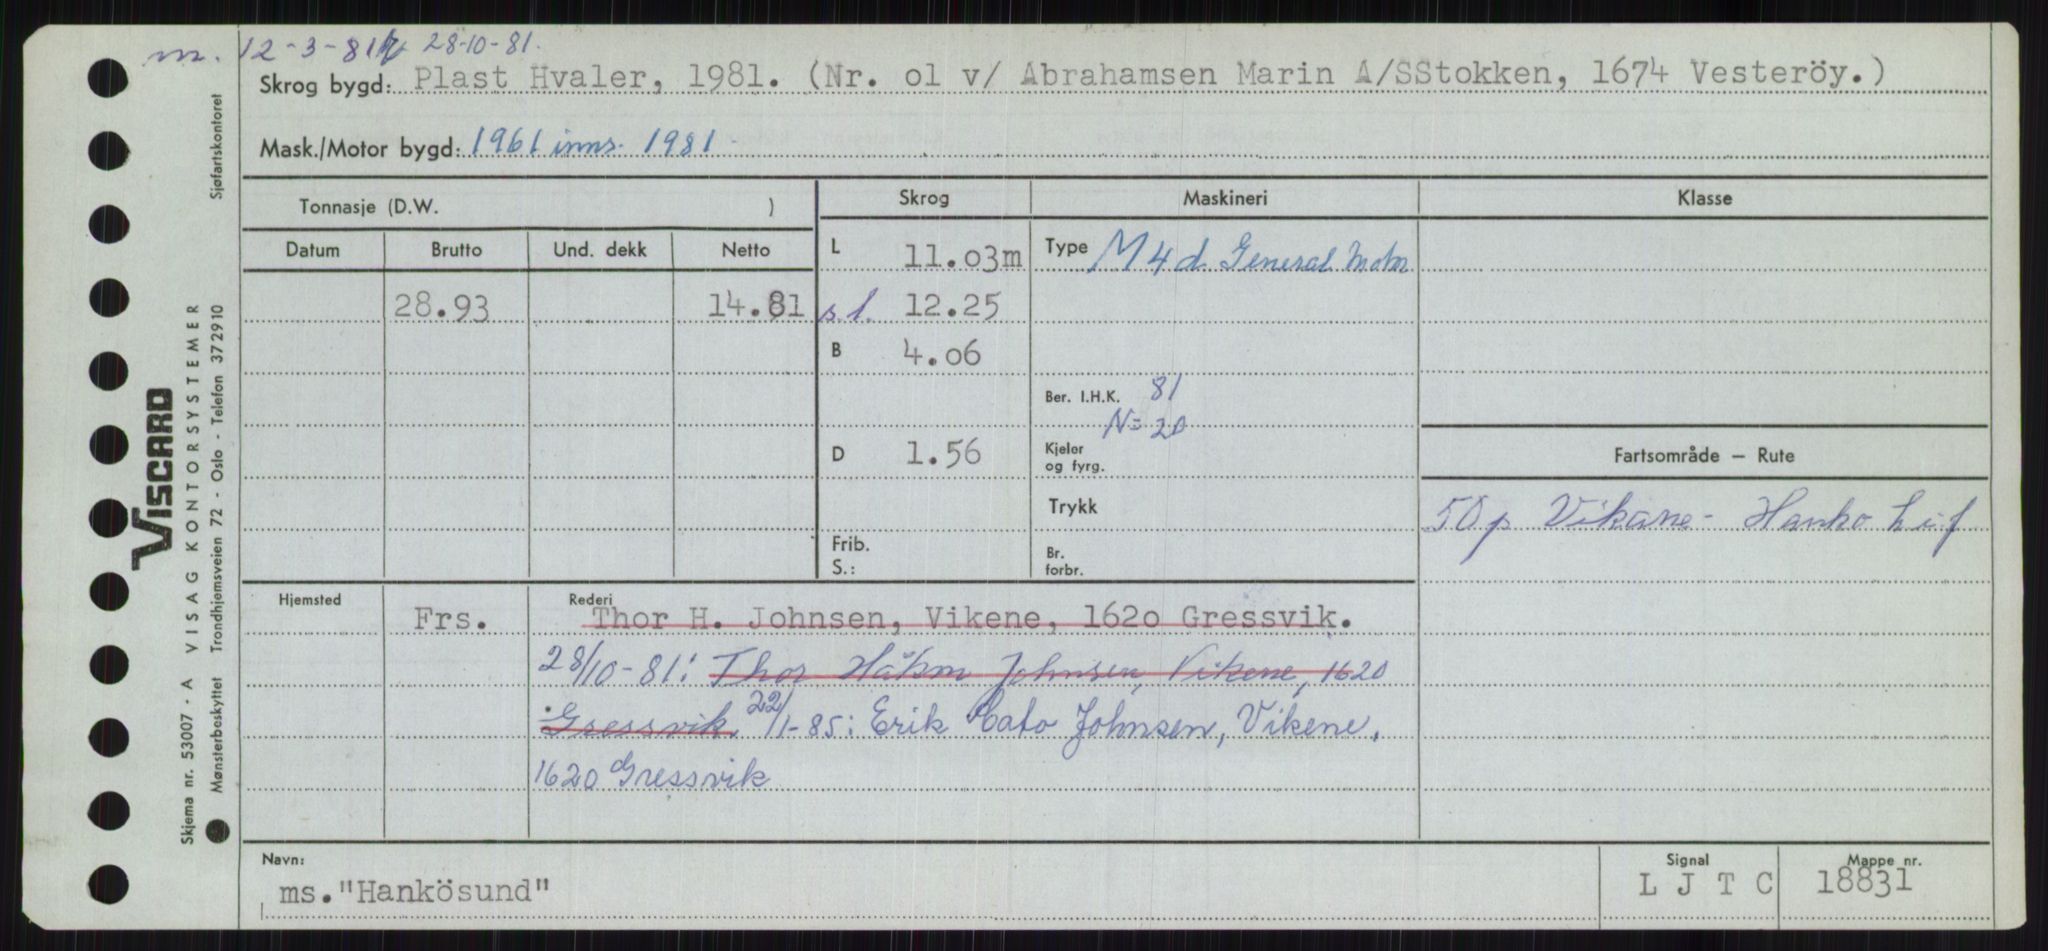 m. 12-3-81 28-10-81.
Skrog bygd: Plast Hvaler, 1981. (Nr. o1 v/ Abrahamsen Marin A/SStokken, 1674 Vesteröy.)
Mask./Motor bygd: 1961 inns. 1981
Tonnasje (D.W. )
Skrog
Maskineri
Klasse
Datum Brutto Und. dekk Netto
L 11.o3m
Type M4d General Motor
28.93 14.81
s.l. 12.25
B 4.o6
Ber. I.H.K. 81
N= 20
D 1.56
Kjeler
og fyrg.
Fartsområde – Rute
Trykk
50p Vikane - Hanko
Frib.
S.:
Br.
forbr.
Hjemsted
Frs.
Rederi
Thor H. Johnsen, Vikene, 162o Gressvik.
28/10-81: Thor Håkon Johnsen, Vikene, 1620
Gressvik 22/1-85: Erik Cato Johnsen, Vikene,
1620 Gressvik
Navn:
ms."Hankösund"
Signal
L J T C
Mappe nr.
18831
Skjema nr. 53007 - A VISAG KONTORSYSTEMER
VISCARD
Mønsterbeskyttet Trondhjemsveien 72 - Oslo - Telefon 372910
Sjøfartskontoret